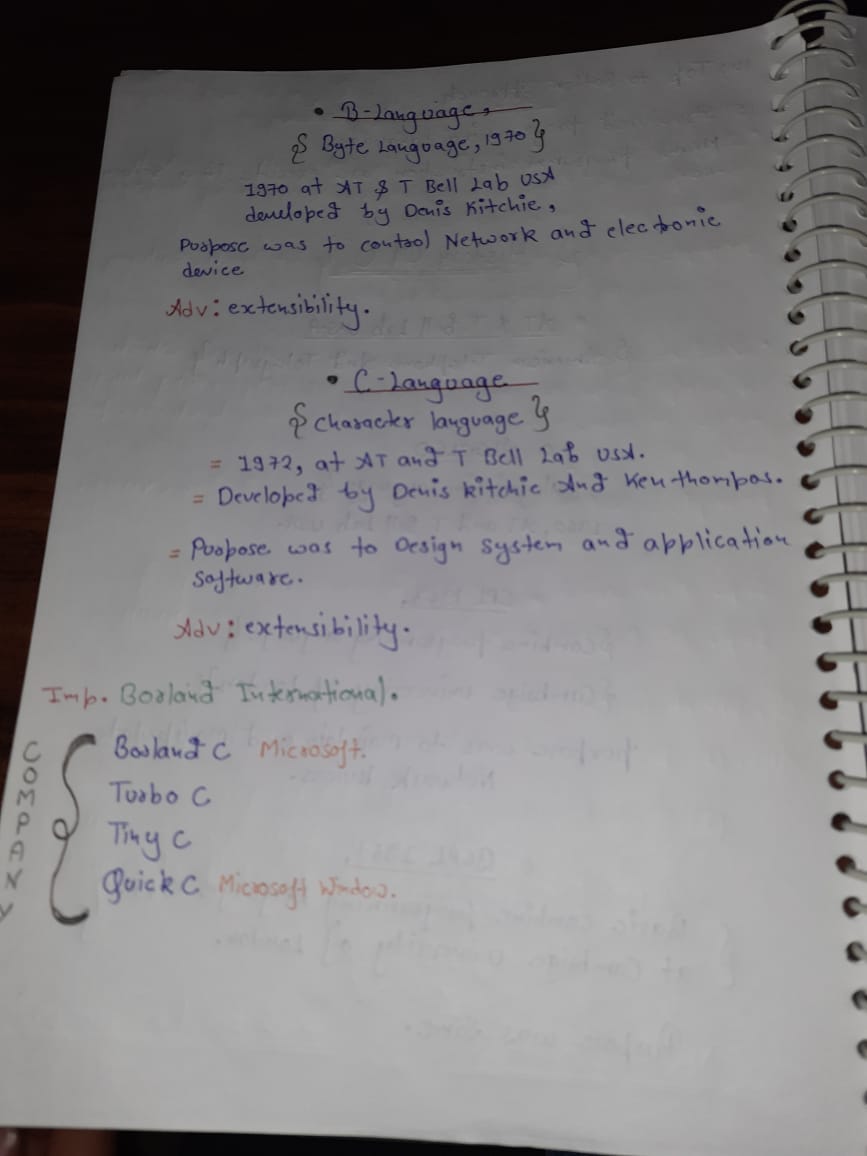 • B-Language,
{ Byte Language, 1970 }
1970 at AT & T Bell Lab USA
developed by Denis Kitchie,
Purpose was to control Network and electronic
device
Adv: extensibility.
• C-Language
{ Character language }
= 1972, at AT and T Bell Lab USA.
= Developed by Denis kitchie And Ken thompas.
= Puopose was to Design system and application
Software.
Adv: extensibility.
Imp. Borland International.
COMPANY
Borland C Microsoft.
Turbo C
Tiny C
Quick C Microsoft Window.